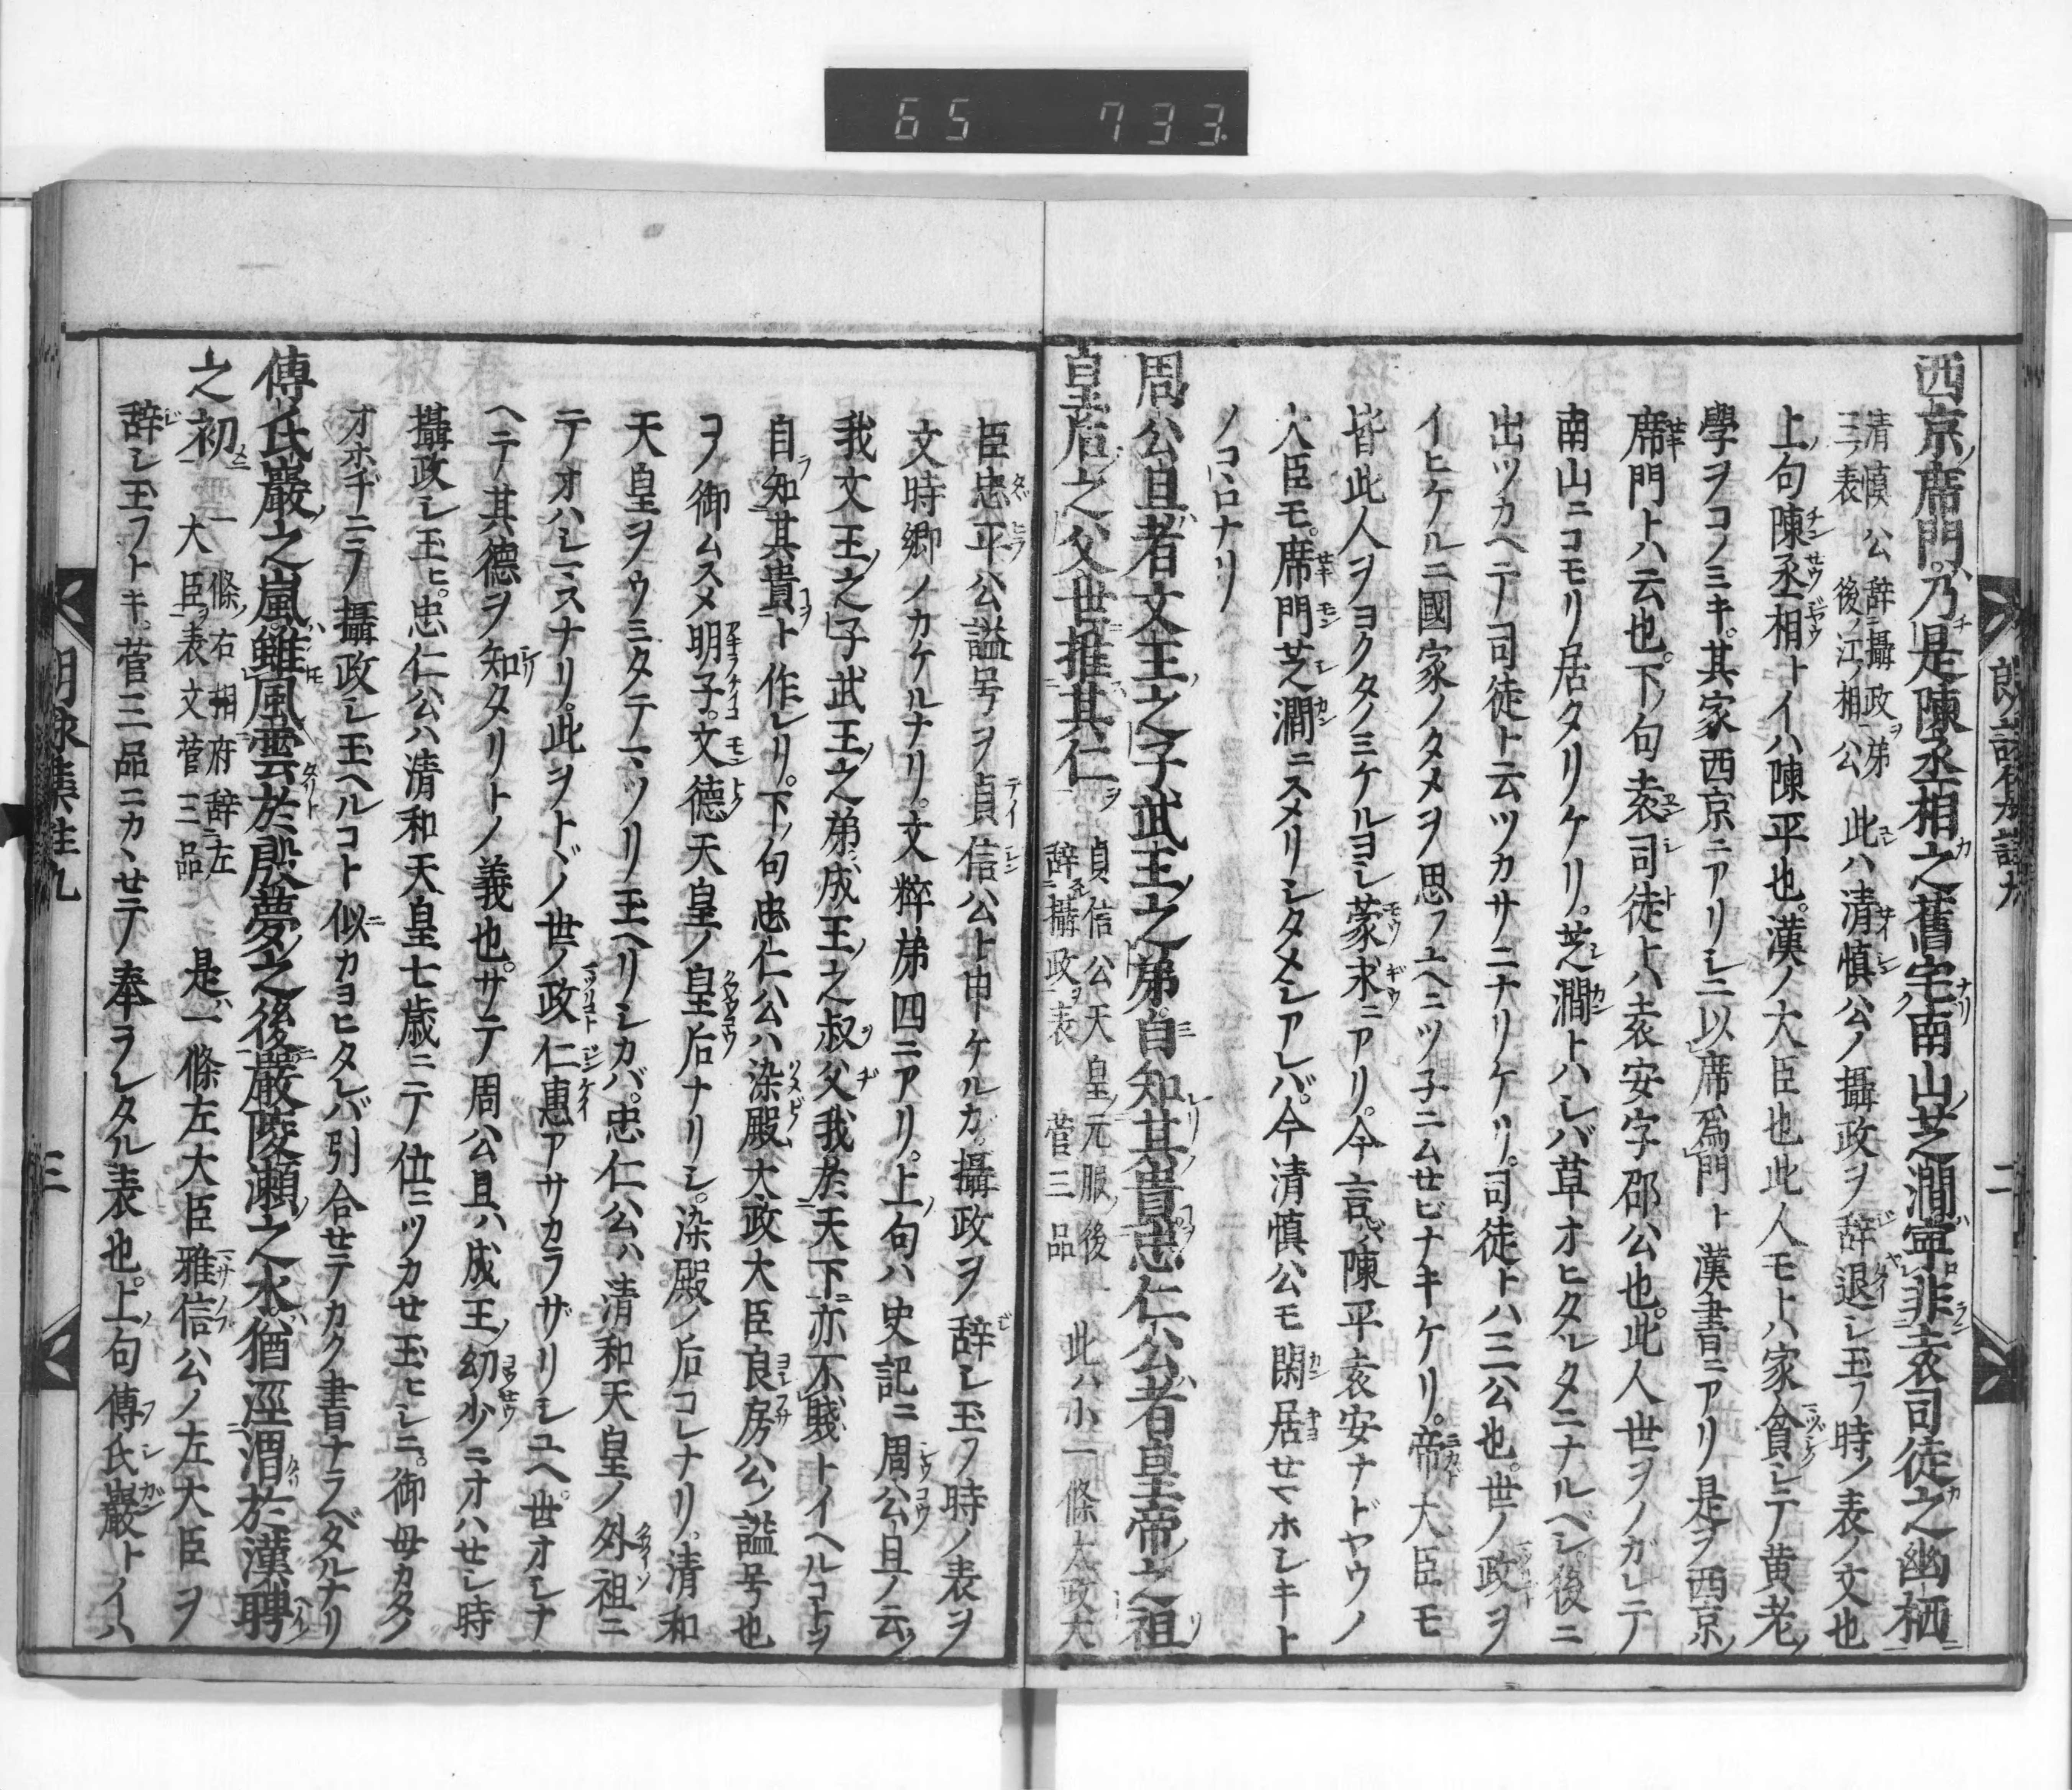 65 733
西京席門乃是陳丞相之舊宅南山芝澗寧非袁司徒之幽栖
清慎公辞攝政第三表 後江相公
此ハ清慎公ノ攝政ヲ辞退シ玉フ時ノ表ノ文也
上句陳丞相トイハ陳平也漢ノ大臣也此人モトハ家貧シテ黄老ノ
學ヲコノミキ其家西京ニアリシニ以席為門ト漢書ニアリ是ヲ西京ノ
席門トハ云也下句袁司徒トハ袁安字邵公也此人世ヲノガレテ
南山ニコモリ居タリケリ芝澗トハシバ草オヒタルタニナルベシ後ニ
出ツカヘテ司徒ト云ツカサニナリケリ司徒トハ三公也世ノ政ヲ
イヒケルニ國家ノタメヲ思フユヘニツ子ニムセビナキケリ帝大臣モ
皆此人ヲヨクタノミケルヨシ蒙求ニアリ今言ハ陳平袁安ナドヤウノ
大臣モ席門芝澗ニスメリシタメシアレバ今清慎公モ閑居セマホシキト
ノコヽロナリ
周公旦者文王之子武王之弟自知其貴忠仁公者皇帝之祖
皇后之父世推其仁
貞信公天皇元服後辞攝政表 菅三品
此ハ小一條太政大
臣忠平公謚号ヲ貞信公ト申ケルガ攝政ヲ辞シ玉フ時ノ表ヲ
文時卿ノカケルナリ文粹第四ニアリ上句ハ史記ニ周公旦ノ云ク
我文王之子武王之弟成王之叔父我於天下亦不賤トイヘルコトヲ
自知其貴ト作レリ下句忠仁公ハ染殿大政大臣良房公ノ謚号也
コヲ御ムスメ明子文德天皇ノ皇后ナリシ染殿ノ后コレナリ清和
天皇ヲウミタテマツリ玉ヘリシカバ忠仁公ハ清和天皇ノ外祖ニ
テオハシマスナリ此ヲトヾノ世ノ政仁惠アサカラザリシユヘ世オシナ
ヘテ其德ヲ知タリトノ義也サテ周公旦ハ成王ノ幼少ニオハセシ時
攝政シ玉ヒ忠仁公ハ清和天皇七歳ニテ位ニツカセ玉ヒシニ御母カタノ
オホヂニテ攝政シ玉ヘルコト似カヨヒタレバ引合セテカク書ナラベタルナリ
傅氏巖之嵐雖風雲於殷夢之後嚴陵瀬之水猶涇渭於漢聘
之初
一條右相府辞左大臣表 文菅三品
是ハ一條左大臣雅信公ノ左大臣ヲ
辞シ玉フトキ菅三品ニカヽセテ奉ラレタル表也上句傅氏巖トイハ
三